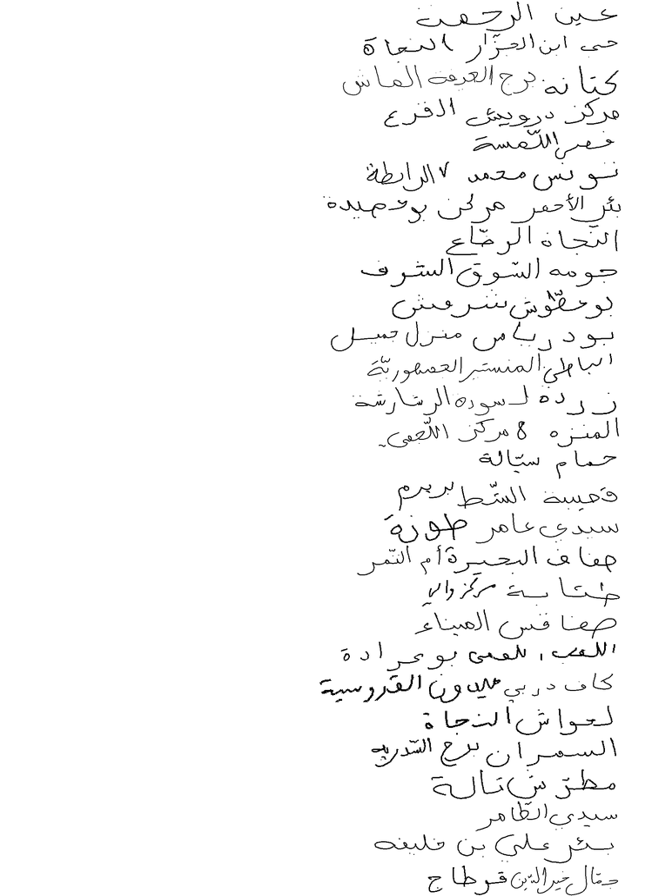 عين الرحمت
حي ابن الجزار النجاة
كتانه برج العيفه الماش
مركز درويش القرع
قصر اللمسة
تونس محمد ٧ الرابطة
بئر الأحمر مركز بوحصيدة
النجاة الرضاع
حومه السوق الشرف
بوعطوش شرمش
بودرياس منزل جميل
الباطن المنستير الجمهوريّة
زردة لسوده الرشارشة
المنزه 8 مركز اللّجمي
حمام سيّالة
قميسة الشّط بريرم
سيدي عامر طوزة
ضفاف البحيرة أم التمر
حتابة مركز والي
صفاقس الميناء
بوعرادة
كاف دربي ميدون القروسية
لعواش النجاة
السمران برج السّدرية
مطرّش تالة
سيدي الظاهر
بئر علي بن خليفه
جمّال خير الدّين قرطاج